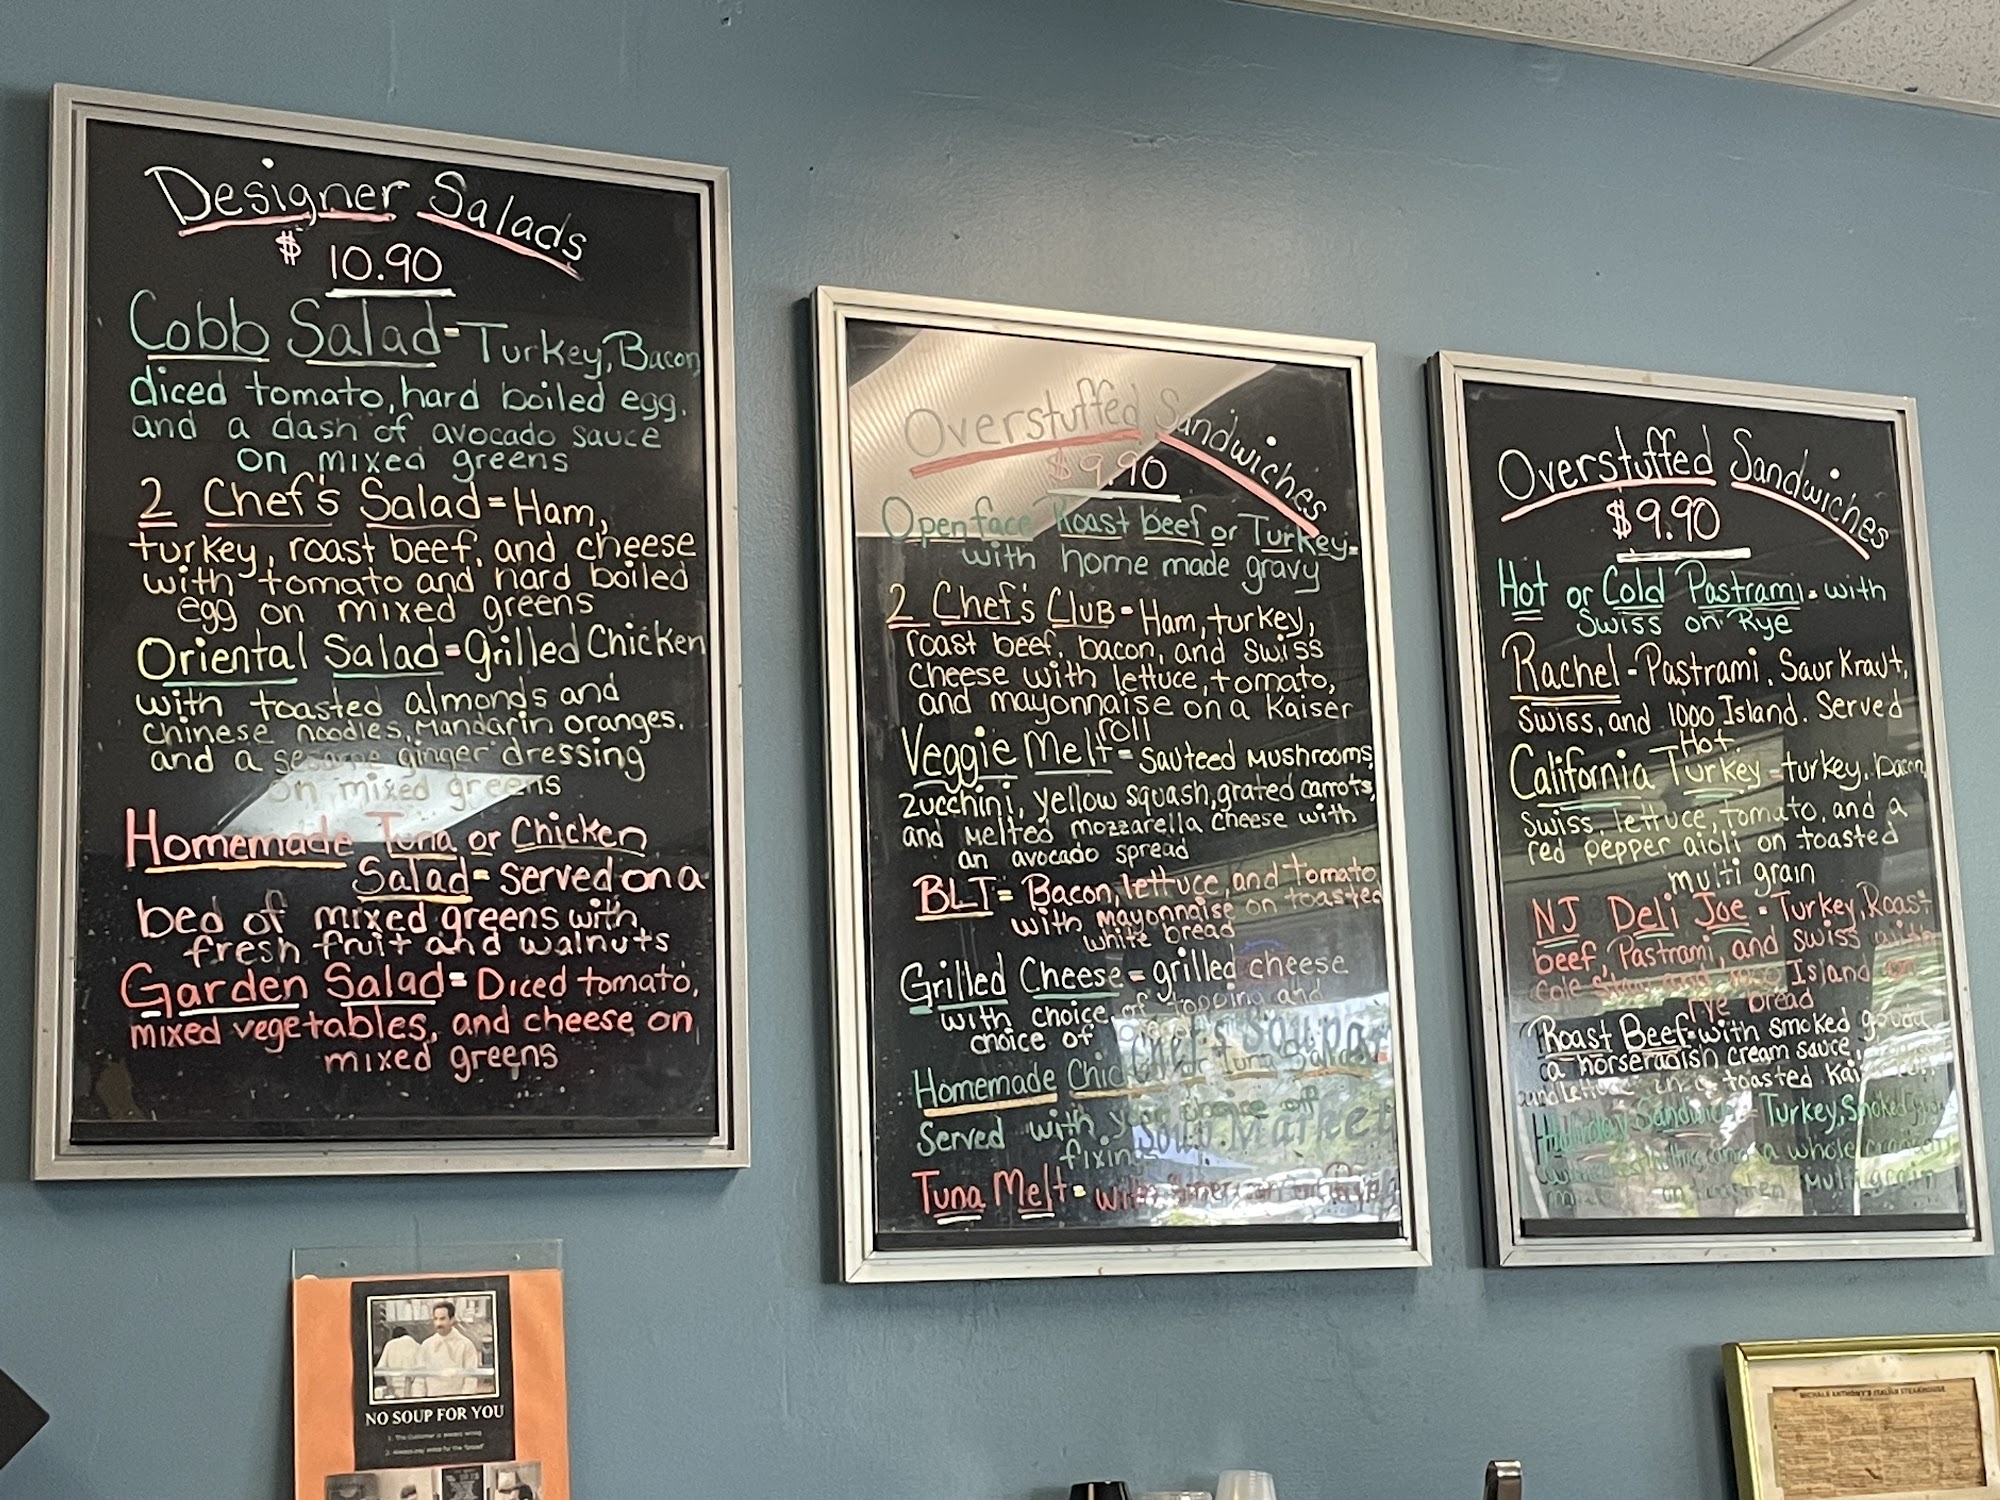 Designer Salads
$ 10.90
Cobb Salad = Turkey, Bacon
diced tomato, hard boiled egg,
and a dash of avocado sauce
on mixed greens
2 Chef's Salad = Ham,
turkey, roast beef, and cheese
with tomato and hard boiled
egg on mixed greens
Oriental Salad = Grilled Chicken
with toasted almonds and
Chinese noodles, Mandarin oranges,
and a sesame ginger dressing
on mixed greens
Homemade Tuna or Chicken
Salad = served on a
bed of mixed greens with
fresh fruit and walnuts
Garden Salad = Diced tomato,
mixed vegetables, and cheese on
mixed greens
Overstuffed Sandwiches
$9.90
Open face Roast beef or Turkey =
with home made gravy
2 Chef's Club = Ham, turkey,
roast beef, bacon, and swiss
cheese with lettuce, tomato,
and mayonnaise on a Kaiser
roll
Veggie Melt = Sauteed Mushrooms,
zucchini, yellow squash, grated carrots,
and melted mozzarella cheese with
an avocado spread
BLT = Bacon, lettuce, and tomato
with mayonnaise on toasted
white bread
Grilled Cheese = grilled cheese
with choice of topping and
choice of
Homemade Chicken or Tuna Salad
Served with your choice of
fixin
Tuna Melt = with American
Overstuffed Sandwiches
$9.90
Hot or Cold Pastrami = with
Swiss on Rye
Rachel - Pastrami, Saur Kraut,
swiss, and 1000 Island. Served
Hot.
California Turkey = turkey, bacon,
swiss, lettuce, tomato, and a
red pepper aioli on toasted
multi grain
NJ Deli Joe = Turkey, Roast
beef, Pastrami, and swiss with
cole slaw and 1000 Island on
rye bread
Roast Beef = with smoked gouda
a horseradish cream sauce,
and lettuce on a toasted Kaiser
Holiday Sandwich = Turkey, Smoked
a whole
multigrain
NO SOUP FOR YOU
1. The Customer is always wrong
MICHALE ANTHONY'S ITALIAN STEAKHOUSE